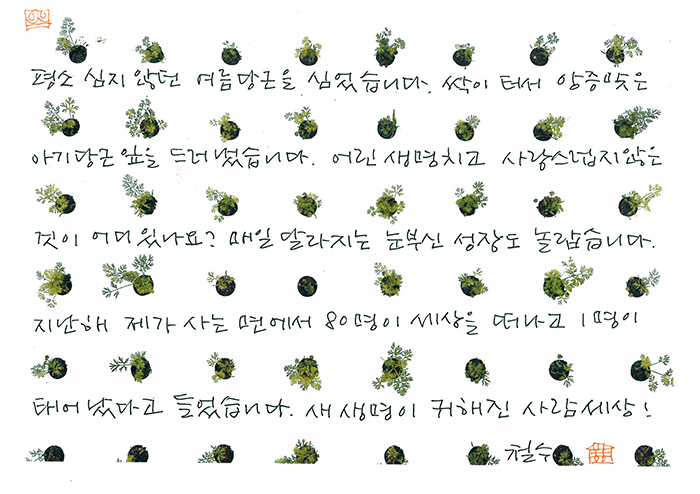 평소 심지 않던 여름당근을 심었습니다. 싹이 터서 앙증맞은
아기당근잎을 드러냈습니다. 어린 생명치고 사랑스럽지 않은
것이 어디 있나요? 매일 달라지는 눈부신 성장도 놀랍습니다.
지난해 제가 사는 면에서 80명이 세상을 떠나고 1명이
태어났다고 들었습니다. 새 생명이 귀해진 사람세상!
철수